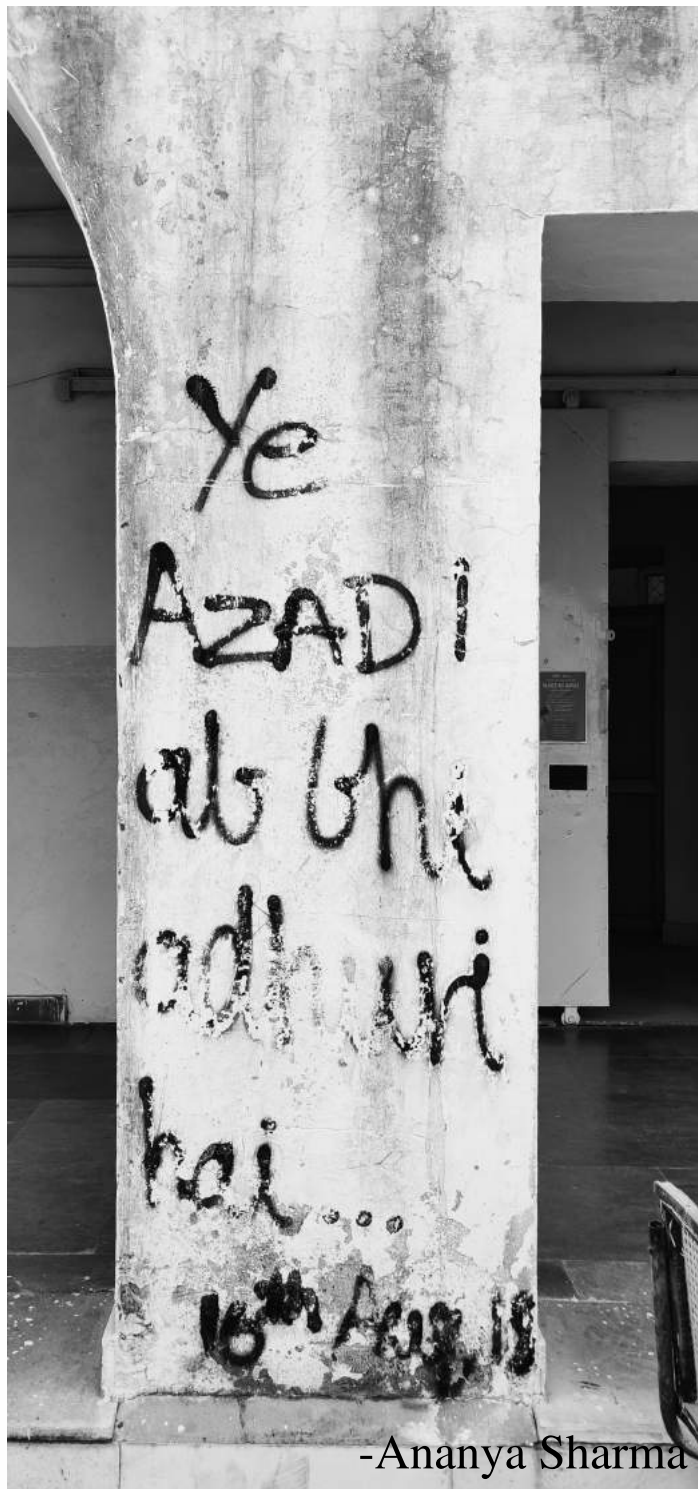 Ye
AZADI
ab bhi
adhuri
hai...
16th Aug, 18
-Ananya Sharma